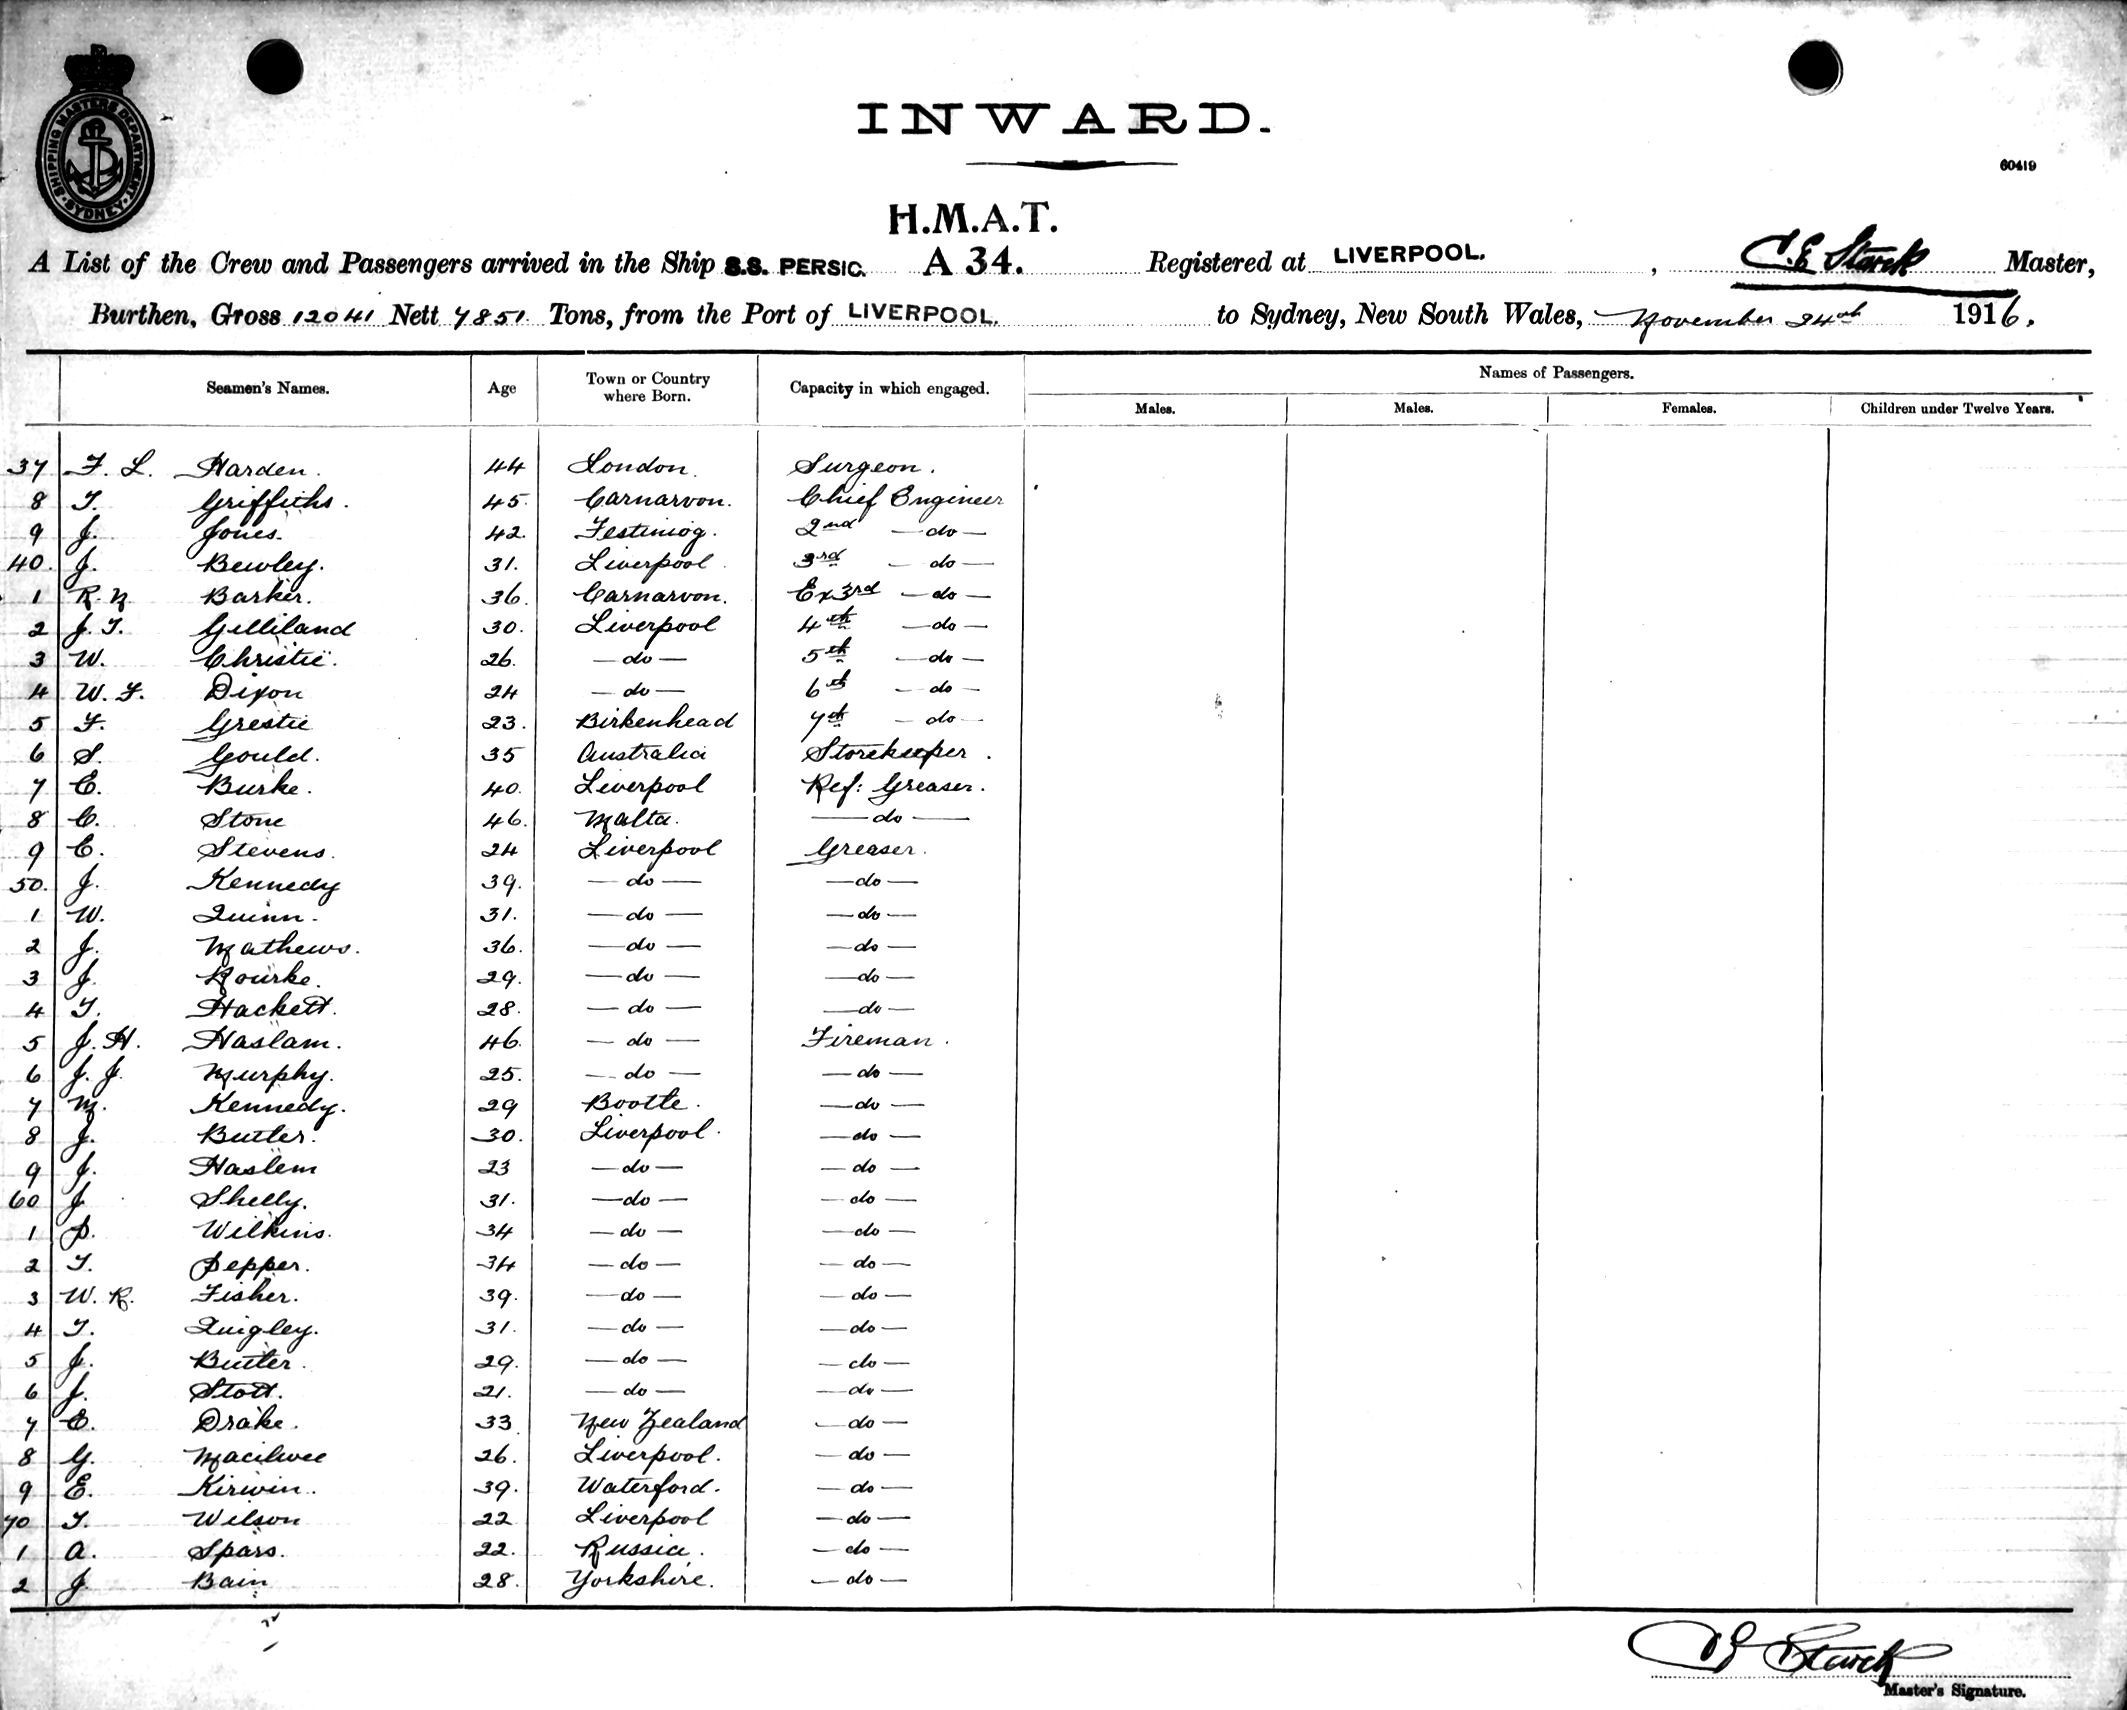 SHIPPING MASTERS DEPARTMENT SYDNEY
INWARD.
60419
H.M.A.T.
A List of the Crew and Passengers arrived in the Ship S.S. PERSIC. A 34. Registered at LIVERPOOL. , C. E Starck Master,
Burthen, Gross 12041 Nett 7851 Tons, from the Port of LIVERPOOL. to Sydney, New South Wales, November 24th 1916.
Seamen's Names. Age Town or Country where Born. Capacity in which engaged. Names of Passengers.
Males. Males. Females. Children under Twelve Years.
37 F. L. Harden. 44 London. Surgeon.
8 T. Griffiths. 45. Carnarvon. Chief Engineer
9 J. Jones. 42. Festiniog. 2nd —do—
40. J. Bewley. 31. Liverpool. 3rd —do—
1 R. N. Barker. 36. Carnarvon. Ex 3rd —do—
2 J. T. Gilliland 30. Liverpool 4th —do—
3 W. Christie. 26. —do— 5th —do—
4 W. F. Dixon 24 —do— 6th —do—
5 F. Grestie 23. Birkenhead 7th —do—
6 S. Gould. 35 Australia Storekeeper.
7 E. Burke. 40. Liverpool Ref: Greaser.
8 C. Stone 46. Malta. —do—
9 E. Stevens. 24 Liverpool Greaser.
50. J. Kennedy 39. —do— —do—
1 W. Quinn. 31. —do— —do—
2 J. Mathews. 36. —do— —do—
3 J. Rourke. 29. —do— —do—
4 T. Hackett. 28. —do— —do—
5 J. H. Haslam. 46. —do— Fireman.
6 J. J. Murphy. 25. —do— —do—
7 M. Kennedy. 29 Bootle. —do—
8 J. Butler. 30. Liverpool. —do—
9 J. Haslem 23 —do— —do—
60 J Shelly. 31. —do— —do—
1 P. Wilkins. 34 —do— —do—
2 T. Pepper. 34 —do— —do—
3 W. R. Fisher. 39. —do— —do—
4 T. Quigley. 31. —do— —do—
5 J. Butler. 29. —do— —do—
6 J. Stott. 21. —do— —do—
7 E. Drake. 33 New Zealand —do—
8 G. Macilwee 26. Liverpool. —do—
9 E. Kirwin. 39. Waterford. —do—
70 T. Wilson 22 Liverpool —do—
1 A. Spars. 22. Russia. —do—
2 J Bain 28. Yorkshire. —do—
C E Starck
Master's Signature.